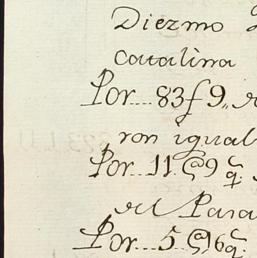 Diezmo
Catalina
Por... 83f 9,,
ron igual
Por... 11 @9 q.
del Para
Por... 5 @16 q.